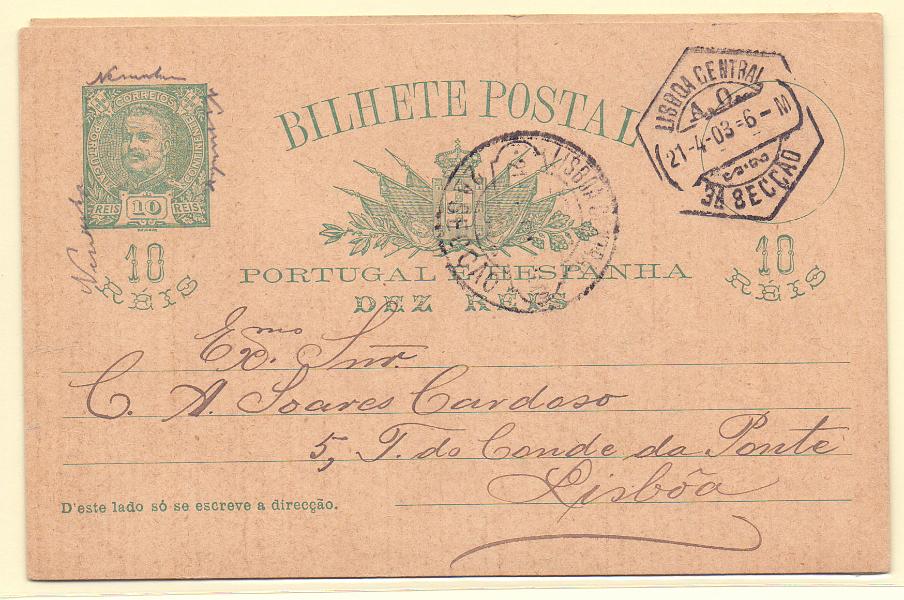 CORREIOS
PORTUGAL
CONTINENTE
REIS 10 REIS
10
RÉIS
BILHETE POSTAL
PORTUGAL E HESPANHA
DEZ REIS
10
RÉIS
LISBOA CENTRAL
21-4-03=6-M
3A SECCAO
LISBOA
Exmo. Snr.
C. A. Soares Cardoso
5, T. do Conde da Ponte
Lisbôa
D'este lado só se escreve a direcção.